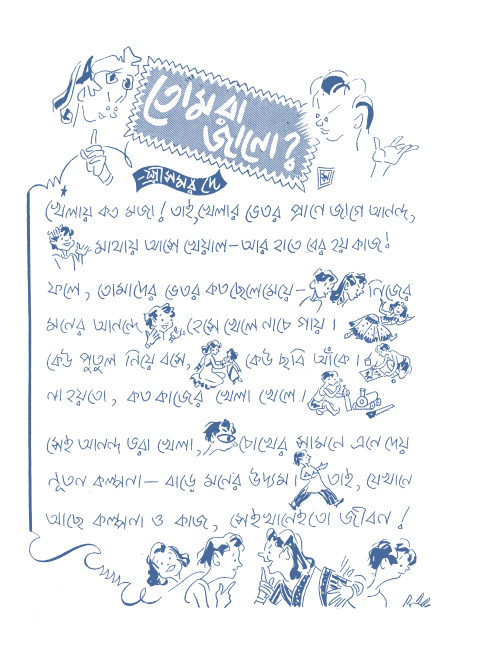 তোমরা
জানো?
শ্রীসমর দে
খেলায় কত মজা! তাই, খেলার ভেতর প্রাণে জাগে আনন্দ,
মাথায় আসে খেয়াল—আর হাতে বের হয় কাজ!
ফলে, তোমাদের ভেতর কত ছেলেমেয়ে— নিজের
মনের আনন্দে হেসে খেলে নাচে গায়।
কেউ পুতুল নিয়ে বসে, কেউ ছবি আঁকে।
না হয়তো, কত কাজের খেলা খেলে।
সেই আনন্দ ভরা খেলা, চোখের সামনে এনে দেয়
নূতন কল্পনা— বাড়ে মনের উদ্যম। তাই, যেখানে
আছে কল্পনা ও কাজ, সেইখানেইতো জীবন!